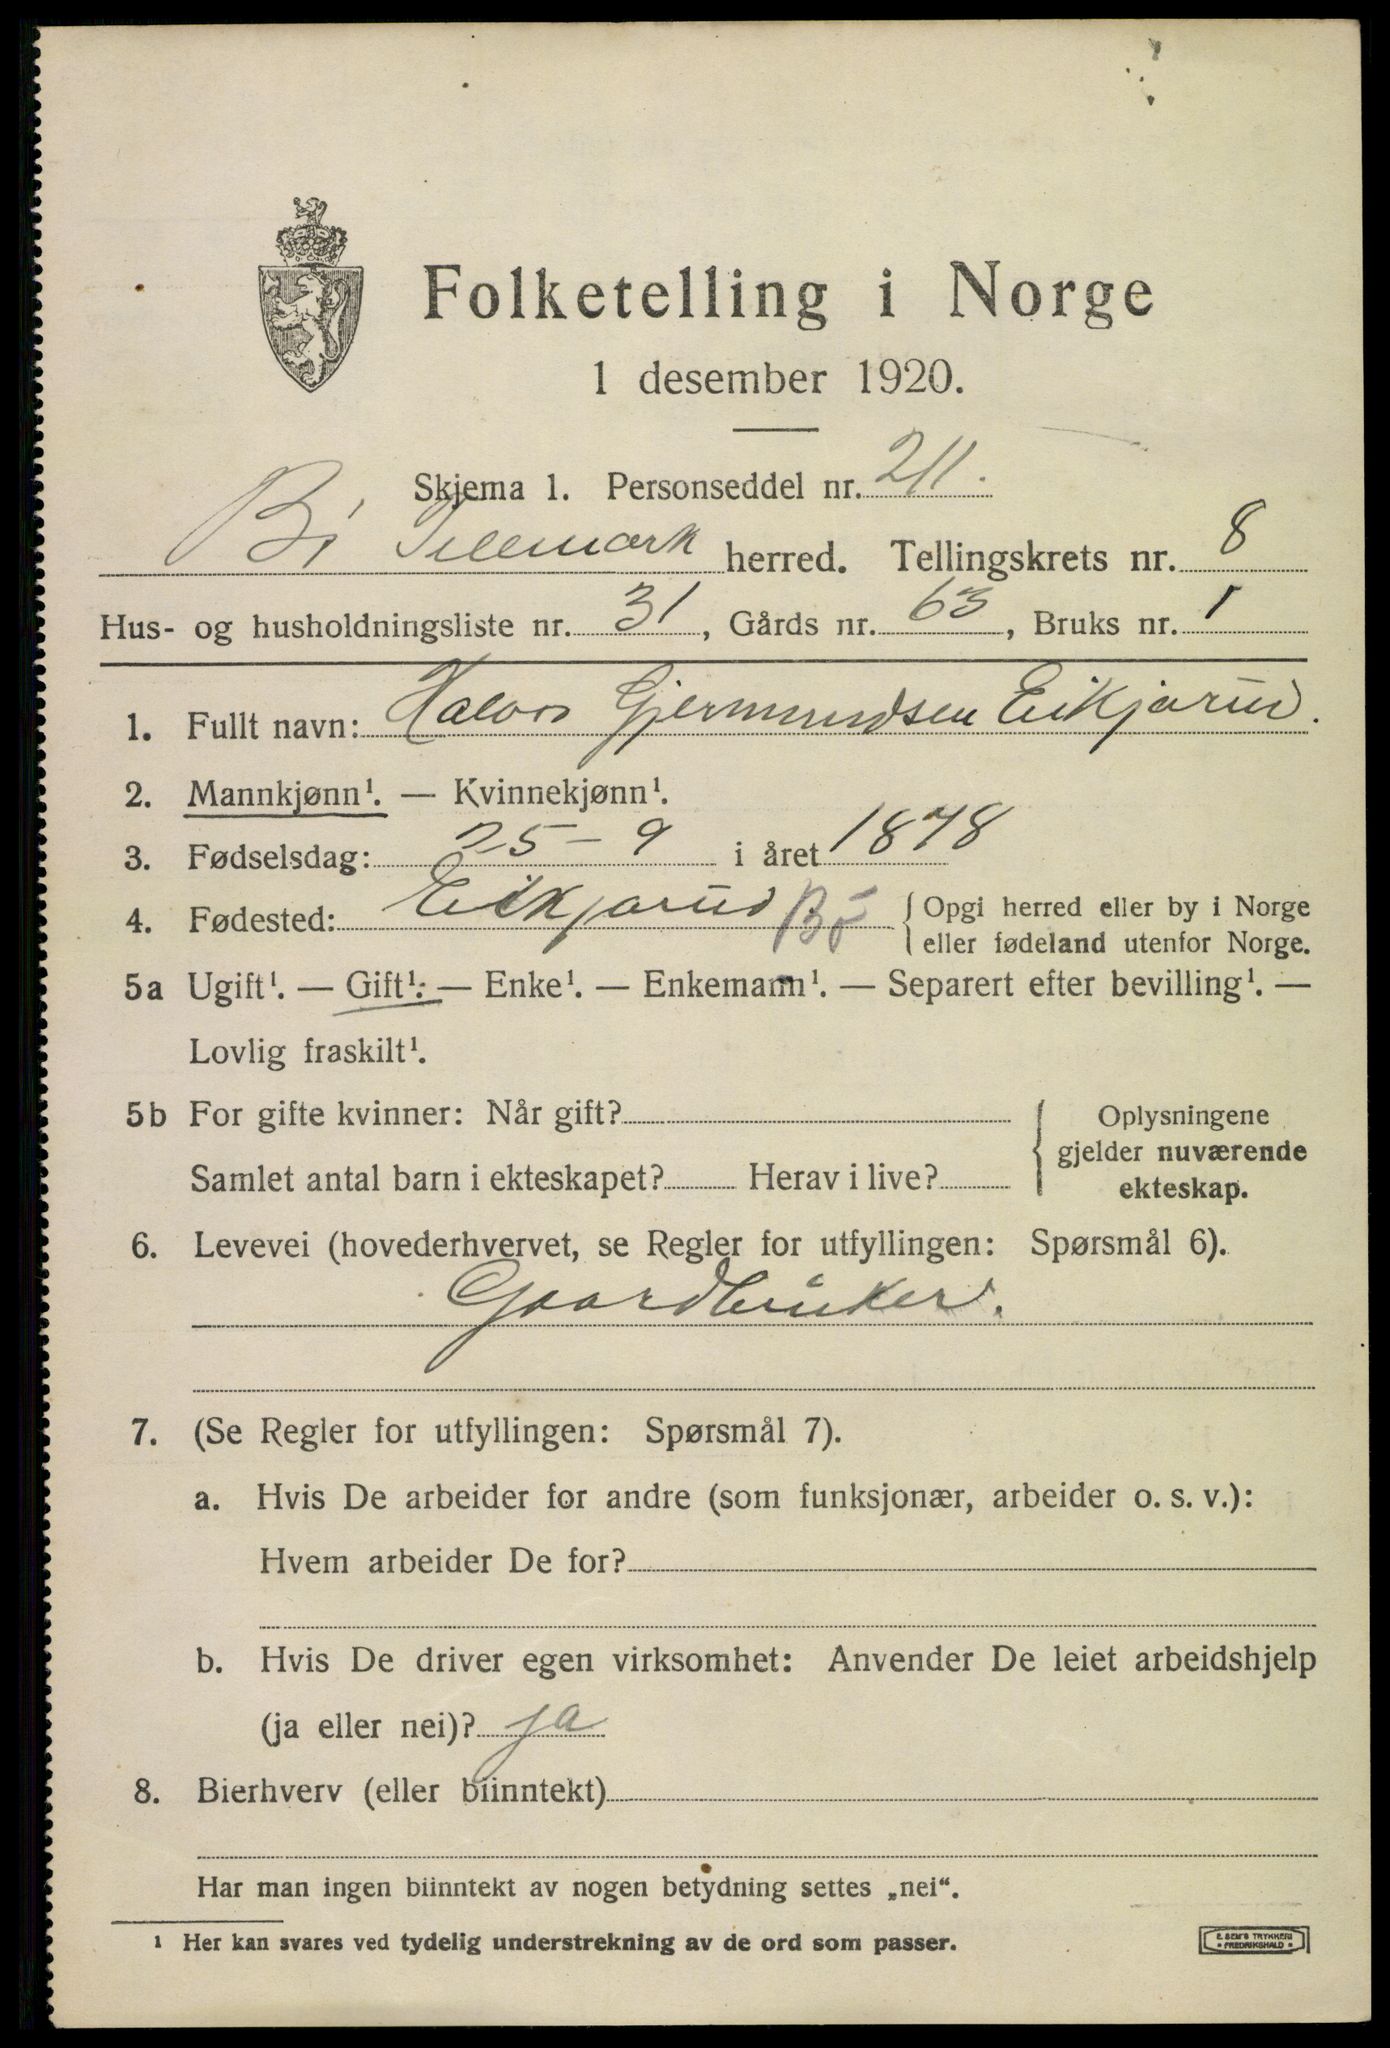 Folketelling i Norge
1 desember 1920.
Skjema 1. Personseddel nr. 211.
Bø Telemark herred. Tellingskrets nr. 8
Hus- og husholdningsliste nr. 31, Gårds nr. 63, Bruks nr. 1
1. Fullt navn: Halvor Gjermundsen Eikjarud.
2. Mannkjønn¹. — Kvinnekjønn¹.
3. Fødselsdag: 25-9 i året 1878
4. Fødested: Eikjarud Bø { Opgi herred eller by i Norge
eller fødeland utenfor Norge.
5a Ugift¹. — Gift¹. — Enke¹. — Enkemann¹. — Separert efter bevilling¹. —
Lovlig fraskilt¹.
5b For gifte kvinner: Når gift?
Samlet antal barn i ekteskapet? Herav i live?
Oplysningene
gjelder nuværende
ekteskap.
6. Levevei (hovederhvervet, se Regler for utfyllingen: Spørsmål 6).
Gaardbruker.
7. (Se Regler for utfyllingen: Spørsmål 7).
a. Hvis De arbeider for andre (som funksjonær, arbeider o. s. v.):
Hvem arbeider De for?
b. Hvis De driver egen virksomhet: Anvender De leiet arbeidshjelp
(ja eller nei)? ja
8. Bierhverv (eller biinntekt)
Har man ingen biinntekt av nogen betydning settes „nei“.
¹ Her kan svares ved tydelig understrekning av de ord som passer.
E. SEM'S TRYKKERI
FREDRIKSHALD